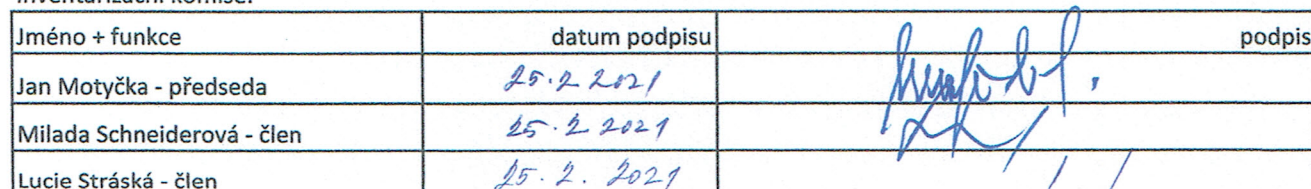 Inventarizační komise:
Jméno + funkce datum podpisu podpis
Jan Motyčka - předseda 25.2 2021
Milada Schneiderová - člen 25.2 2021
Lucie Stráská - člen 25.2.2021